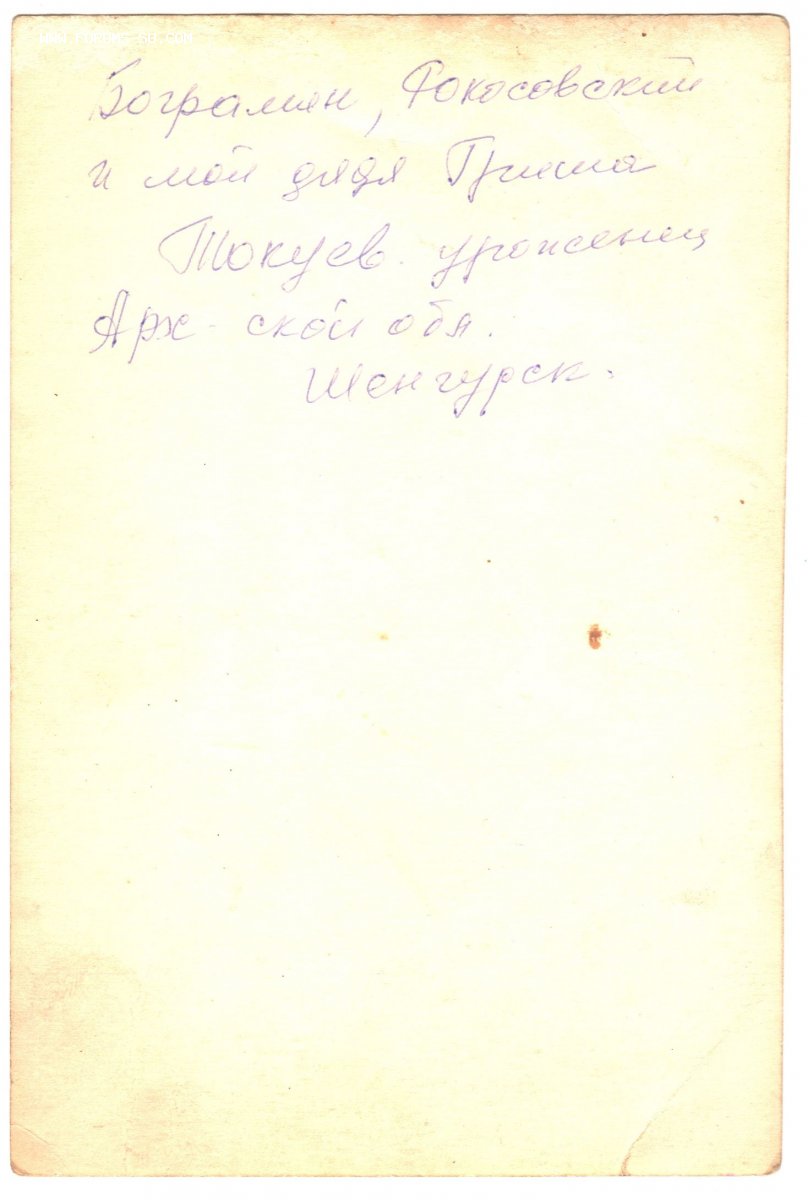 Бограмян, Рокосовский
и мой дядя Гриша
Токуев. уроженец
Арх-ской обл.
Шенгурск.